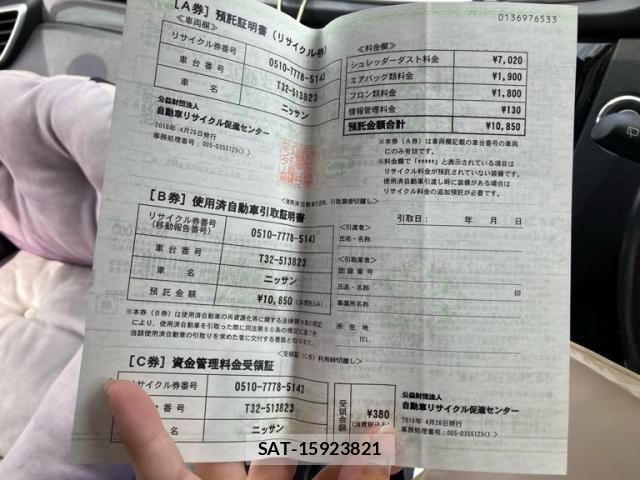 0136976533
[A券] 預託証明書 (リサイクル券)
≪車両欄≫
リサイクル券番号 0510-7778-5143
車台番号 T32-513823
車名 ニッサン
公益財団法人
自動車リサイクル促進センター
2016年 4月26日発行
事務処理番号:005-0355125(1) >
≪料金欄≫
シュレッダーダスト料金 ¥7,020
エアバッグ類料金 ¥1,900
フロン類料金 ¥1,800
情報管理料金 ¥130
預託金額合計 ¥10,850
※本券(A券)は車両欄記載の車台番号の車両
にのみ有効です。
※料金欄で「*****」と表示されている項目は
リサイクル料金が預託されていない装備です。
使用済自動車引渡し時に装備がある場合は
リサイクル料金の追加預託が必要です。
[B券] 使用済自動車引取証明書
リサイクル券番号
(移動報告番号) 0510-7778-5143
車台番号 T32-513823
車名 ニッサン
預託金額 ¥10,850 (消費税込み)
※本券(B券)は使用済自動車の再資源化等に関する法律第80条の規定
により、使用済自動車を引取った際に同法第80条の規定に基づき
当該使用済自動車の引取りを求めた者に交付する書面となります。
引取日: 年 月 日
<引渡者>
氏名・名称
<引取業者>
登録番号
氏名・名称 印
事業所名称
所在地
TEL.
<受領証(C券)利用時切離し>
[C券] 資金管理料金受領証
リサイクル券番号 0510-7778-5143
車台番号 T32-513823
車名 ニッサン
受領金額 ¥380
(消費税込み)
公益財団法人
自動車リサイクル促進センター
2016年 4月26日発行
事務処理番号:005-0355125(1) >
SAT-15923821